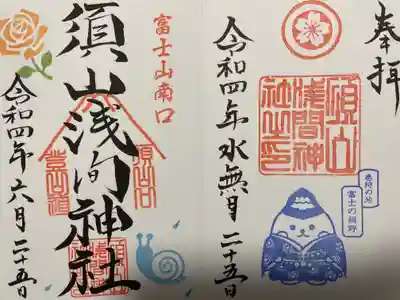 奉拝
令和四年水無月二十五日
須山
浅間神
社之印
巻狩の地
富士の裾野
富士山南口
須山浅間神社
令和四年六月二十五日
須山口
登山道